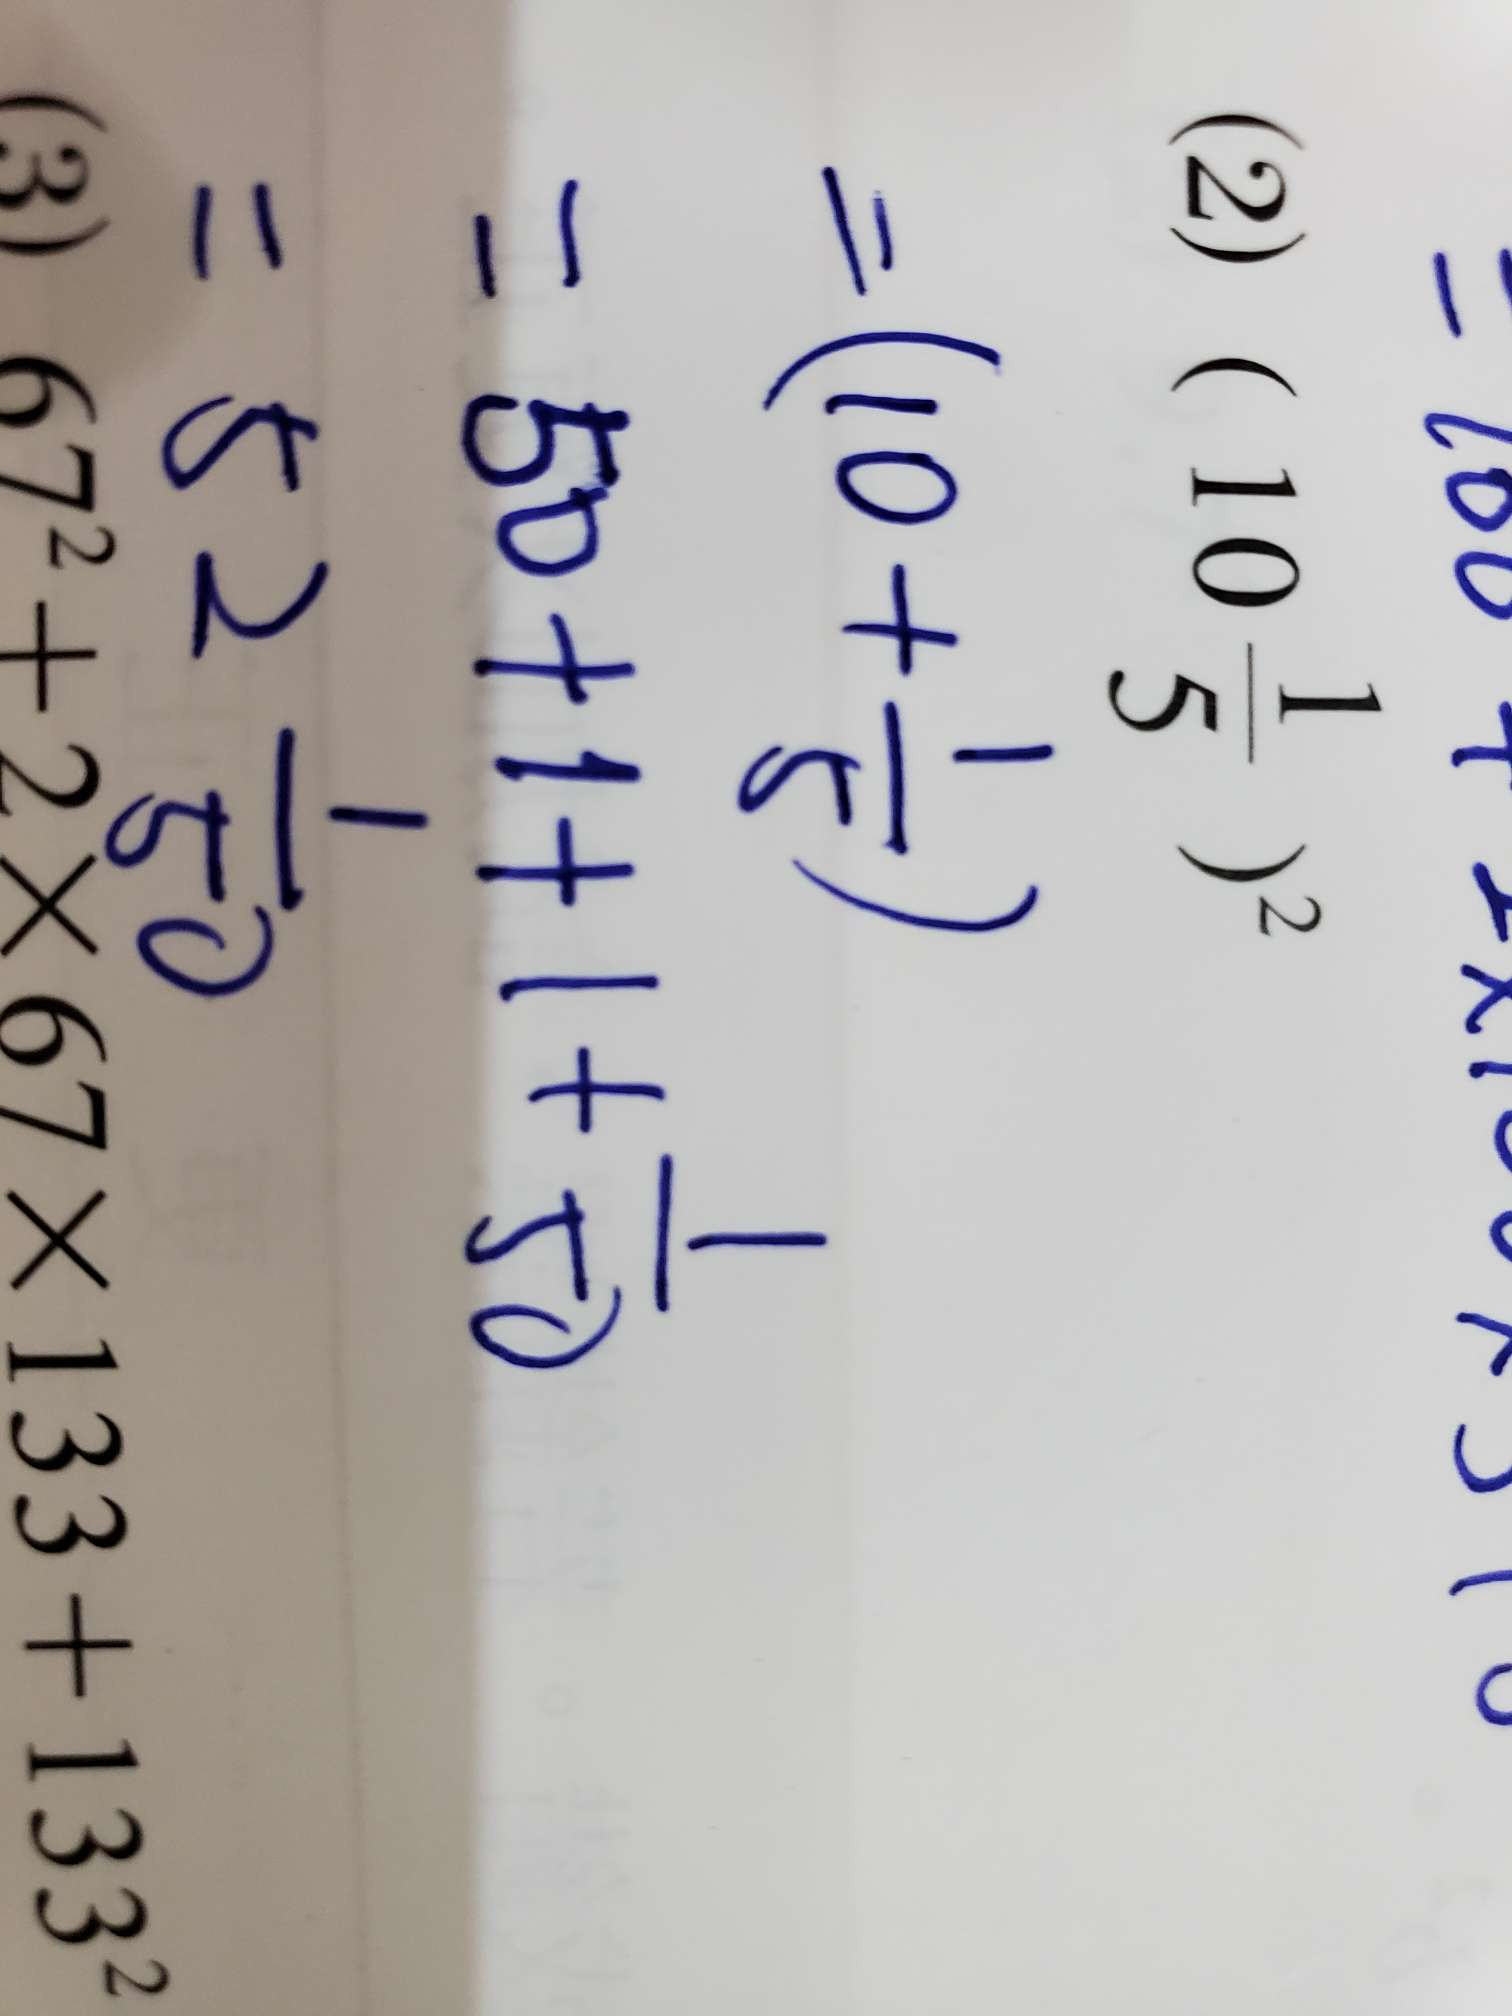 = 100 + 2×100×
(2) ( 10 1/5 )²
= (10 + 1/5)
= 50 + 1 + 1 + 1/50
= 52 1/50
(3) 67² + 2 × 67 × 133 + 133²